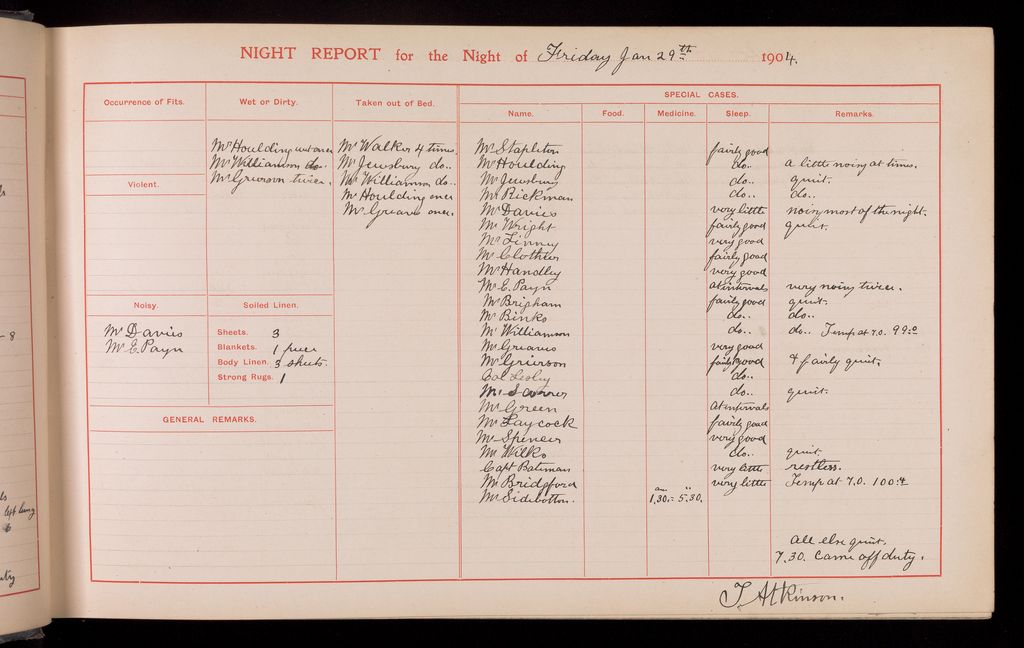 NIGHT REPORT for the Night of Friday Jan 29th 1904.
Occurrence of Fits.
Wet or Dirty.
Mr Houlding wet once
Mr Williamson do.
Mr Grierson twice.
Taken out of Bed.
Mr Walker 4 times.
Mr Jewsbury do..
Mr Williamson do..
Mr Houlding once
Mr Greaves once.
Violent.
Noisy.
Mr Davies
Mr E. Payn
Soiled Linen.
Sheets. 3
Blankets. 1 piece
Body Linen. 3 shirts.
Strong Rugs. 1
GENERAL REMARKS.
SPECIAL CASES.
Name. Food. Medicine. Sleep. Remarks.
Mr Stapleton fairly good
Mr Houlding do.. a little noisy at times.
Mr Jewsbury do.. quiet.
Mr Rickman do.. do..
Mr Davies very little noisy most of the night.
Mr Wright fairly good quiet.
Mr Finney very good
Mr Clothier fairly good
Mr Handley very good
Mr E. Payn at intervals very noisy twice.
Mr Brigham fairly good quiet.
Mr Binks do.. do..
Mr Williamson do.. do.. Temp at 7.0. 99.0
Mr Greaves very good
Mr Grierson fairly good & fairly quiet.
Col Lesley do..
Mr do.. quiet.
Mr Green at intervals
Mr Laycock fairly good
Mr Spencer very good
Mr Wilks do.. quiet
Capt Bateman very little restless.
Mr Bridgford very little Temp at 7.0. 100.4
Mr Sidebottom. am " 1.30.- 5.30.
all else quiet.
7.30. Came off duty.
T Atkinson.
left lung